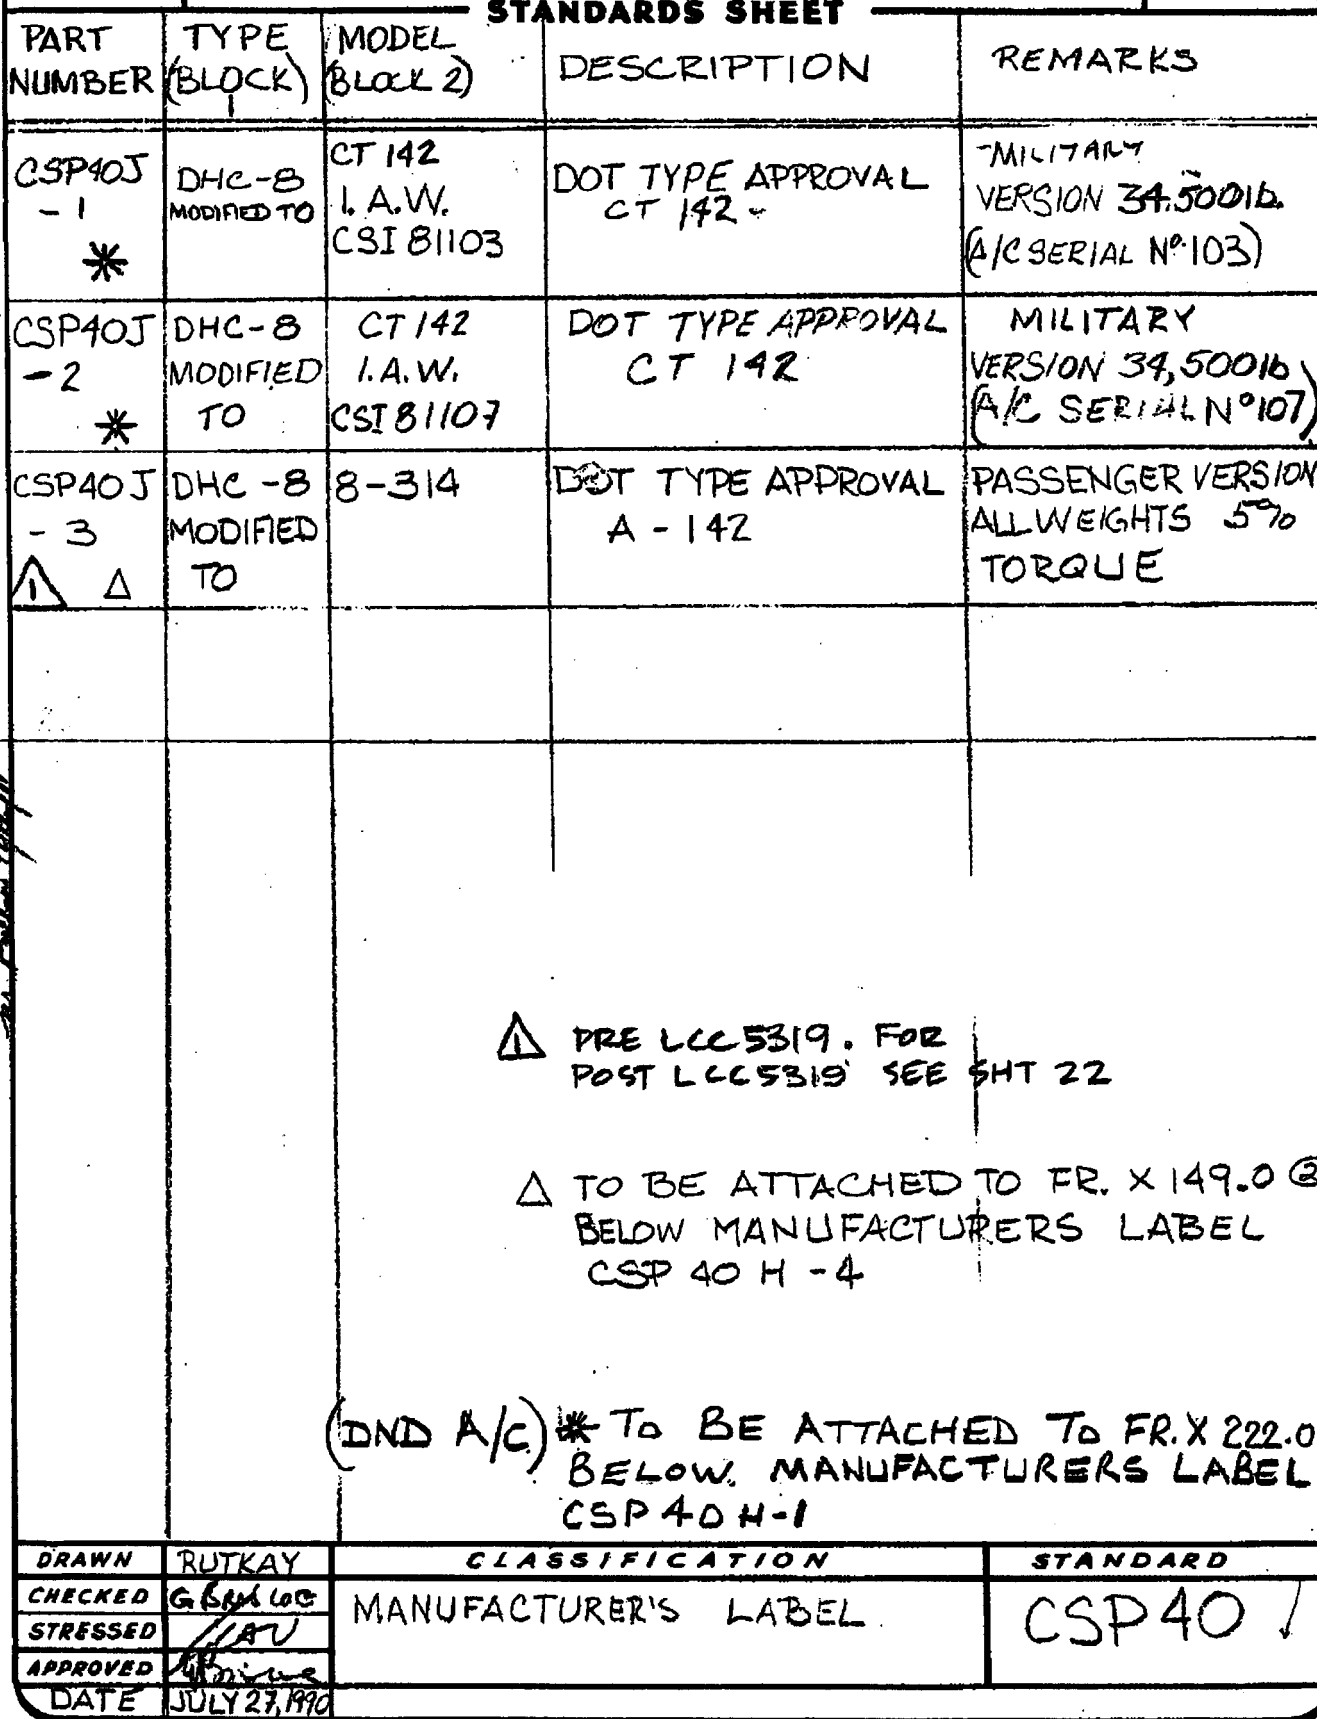 STANDARDS SHEET
PART NUMBER
TYPE (BLOCK 1)
MODEL (BLOCK 2)
DESCRIPTION
REMARKS
CSP40J
- 1
*
DHC-8
MODIFIED TO
CT 142
I.A.W.
CSI 81103
DOT TYPE APPROVAL
CT 142 -
-MILITARY
VERSION 34,500lb.
(A/C SERIAL Nº 103)
CSP40J
- 2
*
DHC-8
MODIFIED
TO
CT 142
I.A.W.
CSI 81107
DOT TYPE APPROVAL
CT 142
MILITARY
VERSION 34,500lb
(A/C SERIAL Nº 107)
CSP40J
- 3
△1 △
DHC-8
MODIFIED
TO
8-314
DOT TYPE APPROVAL
A-142
PASSENGER VERSION
ALL WEIGHTS 5%
TORQUE
△1 PRE LCC5319. FOR
POST LCC5319 SEE SHT 22
△ TO BE ATTACHED TO FR. X 149.0
BELOW MANUFACTURERS LABEL
CSP 40 H - 4
(DND A/C) * TO BE ATTACHED TO FR. X 222.0
BELOW. MANUFACTURERS LABEL
CSP 40 H-1
DRAWN RUTKAY
CHECKED
STRESSED
APPROVED
DATE JULY 27, 1990
CLASSIFICATION
MANUFACTURER'S LABEL
STANDARD
CSP 40